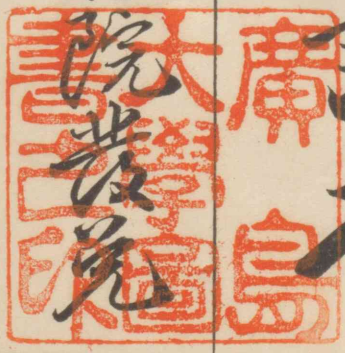 廣島
大學圖
書之印
院發兌